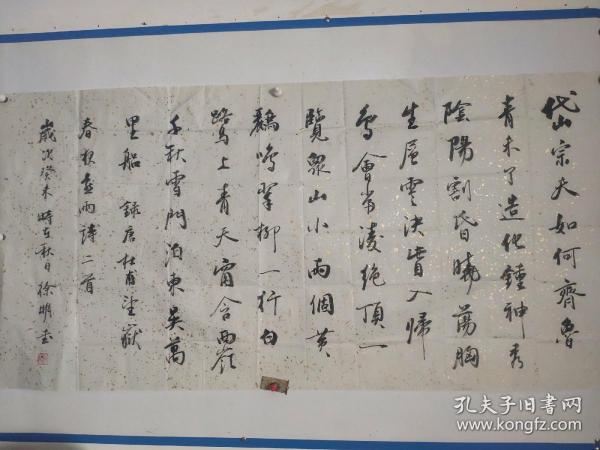 岱宗夫如何齊魯
青未了造化鍾神秀
陰陽割昏曉蕩胸
生層雲決眥入歸
鳥會當凌絶頂一
覽眾山小兩個黃
鸝鳴翠柳一行白
鷺上青天窗含西嶺
千秋雪門泊東吳萬
里船 録唐杜甫望嶽
春夜喜雨詩二首
歲次癸未時在秋日徐明書
孔夫子旧书网
www.kongfz.com